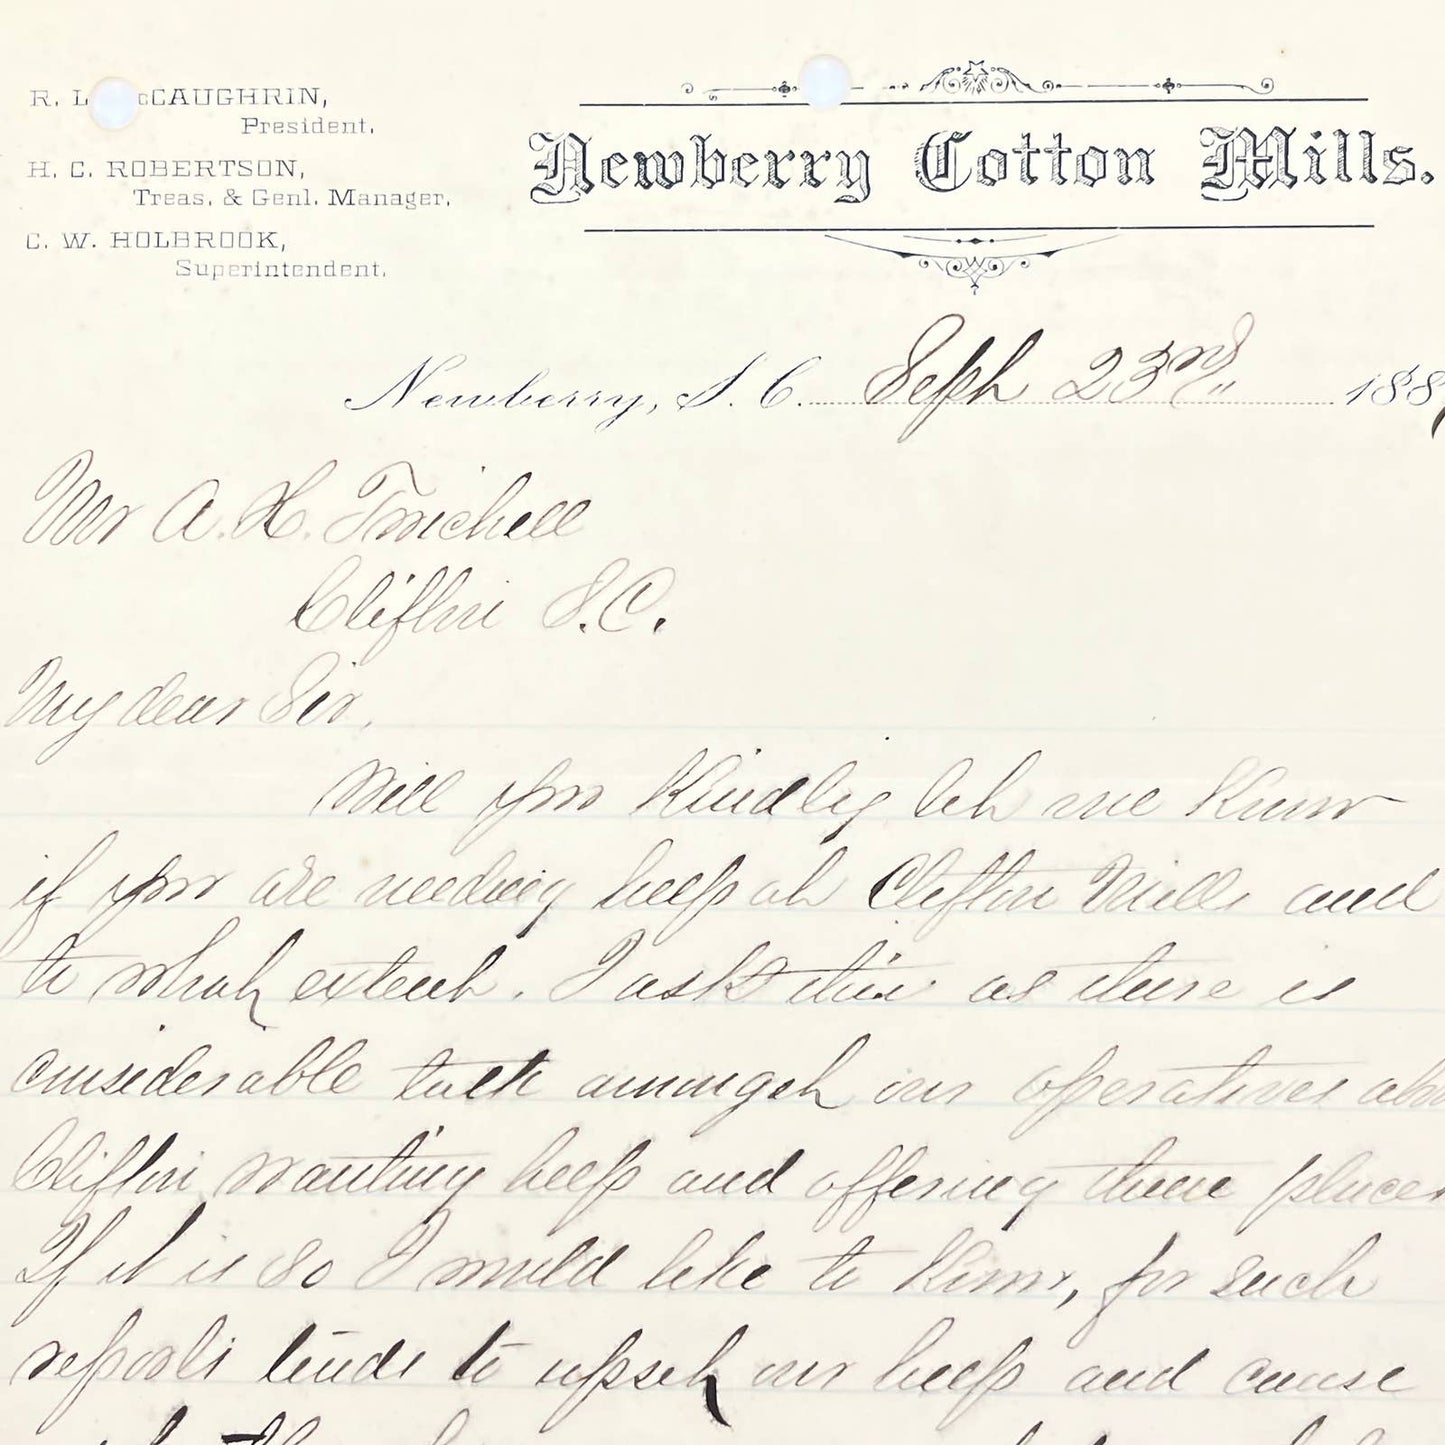 R. L. McCAUGHRIN,
President.
H. C. ROBERTSON,
Treas. & Genl. Manager.
C. W. HOLBROOK,
Superintendent.
Newberry Cotton Mills.
Newberry, S. C. Sept 23rd 188
Mr A. H. Twichell
Clifton S.C.
My dear Sir,
Will you kindly let me know
if you are needing help at Clifton Mills and
to what extent. I ask this as there is
considerable talk amongst our operatives
Clifton wanting help and offering them places
If it is so I would like to know, for such
reports tends to upset our help and cause